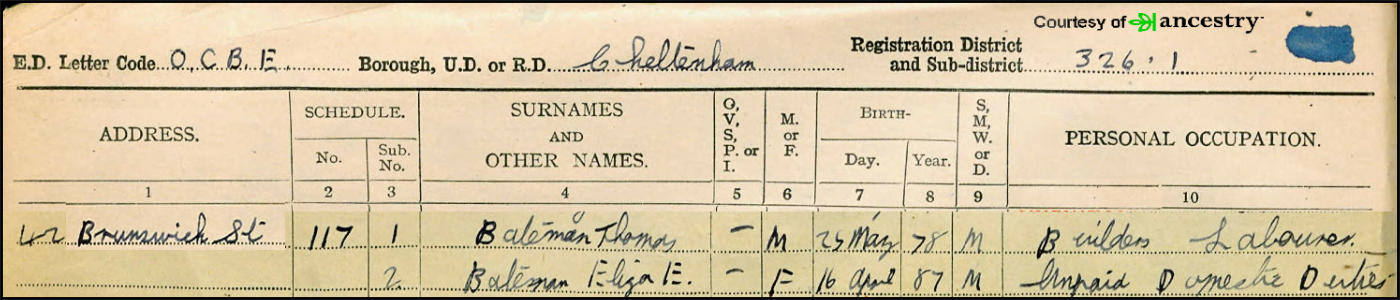 Courtesy of ancestry
E.D. Letter Code O.C.B.E. Borough, U.D. or R.D. Cheltenham Registration District and Sub-district 326.1
ADDRESS. SCHEDULE. No. Sub. No. SURNAMES AND OTHER NAMES. O, V, S, P. or I. M. or F. BIRTH- Day. Year. S, M, W. or D. PERSONAL OCCUPATION.
1 2 3 4 5 6 7 8 9 10
42 Brunswick St 117 1 Bateman Thomas - M 25 May 78 M Builders Labourer.
2 Bateman Eliza E. - F 16 April 87 M Unpaid Domestic Duties